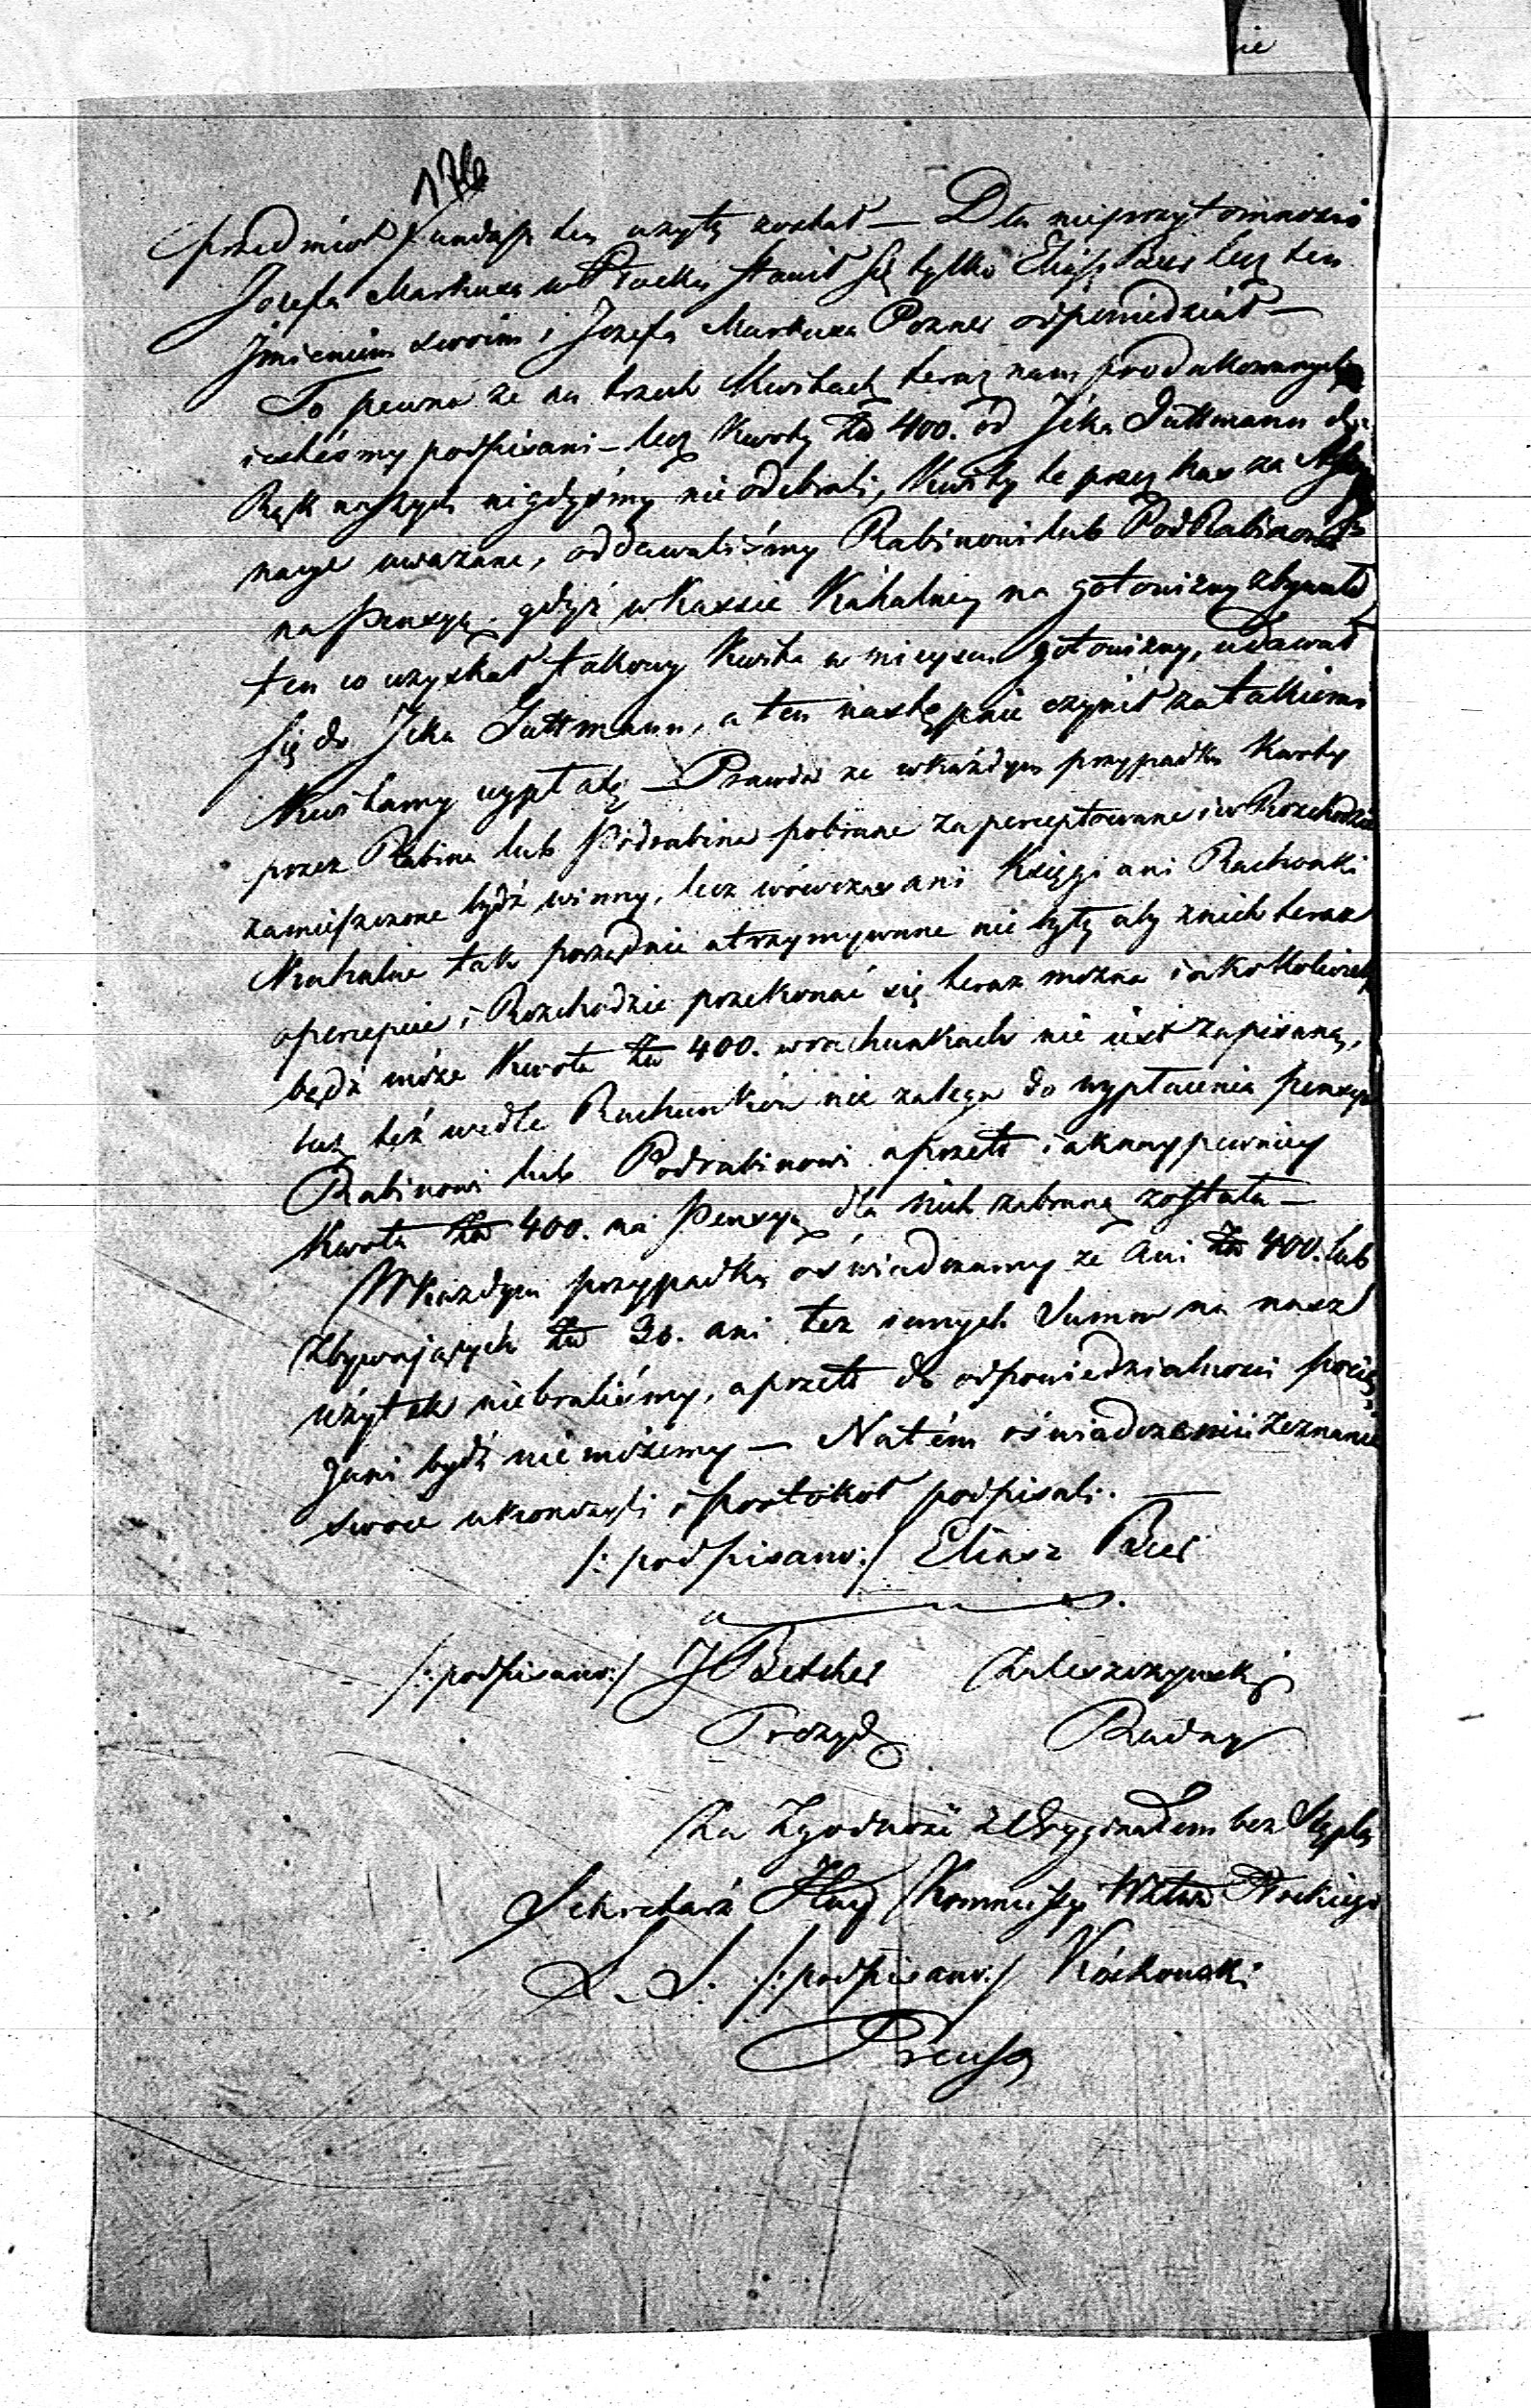 ie
176
przedmiot fundusz ten użyty został — Dla nieprzytomności
Jozefa Markusa w Płocku stawił się tylko Eliasz Baer lecz ten
Jmieniem swoim i Jozefa Markusa Posner odpowiedział —
To pewna że na trzech Kwitach teraz nam produkowanych
iesteśmy podpisani – lecz kwoty Złł 400. od Jcka Guttmann do
Rąk naszych nigdyśmy nie odebrali, Kwity te przez kas za Assy
nacye uważane, oddawaliśmy Rabinowi lub PodRabinowi
na Pensyą, gdyż w Kassie Kahalney na gotowizny zbywało
ten co uzyskał takowy Kwit w mieyscu gotowizny, udawał
się do Jcka Guttmann, a ten następnie czynił za takiemi
Kwitamy wypłatę — Prawda że w każdym przypadku kwoty
przez Rabina lub Podrabina pobrane zaperceptowane i w Rozchodzie
zamieszczone bydź winny, lecz wówczas ani Księgi ani Rachunki
Kahalne tak porządnie utrzymywane nie były aby z nich teraz
o percepcie i Rozchodzie przekonać się teraz można iakokolwiek
bądź może kwota Złł 400. w rachunkach nie iest zapisaną,
tuż też wedle Rachunków nie zalega do wypłacenia pensya
Rabinowi lub Podrabinowi a przeto iak naypewniey
kwota Złł 400. na Pensyą dla nich zabraną została —
W każdym przypadku oświadczamy że ani Złł 400. lub
zbywających Złł 36. ani też innych Summ na nasz
użytek niebraliśmy, a przeto do odpowiedzialności pocią
gani bydź nie możemy — Na tém oświadczenii zeznanie
swoie ukończyli i protokół podpisali. —
/: podpisano :/ Eliasz Baer
a u s.
/: podpisano :/ J Betcher Zaleszczynski
Prezyd. Radny
Za Zgodność z Oryginałem bez Stęplu
Sekretarz Jlny Kommissyi Wztwa Płockiego
L. S. /: podpisano :/ Kóskowski
Preuss